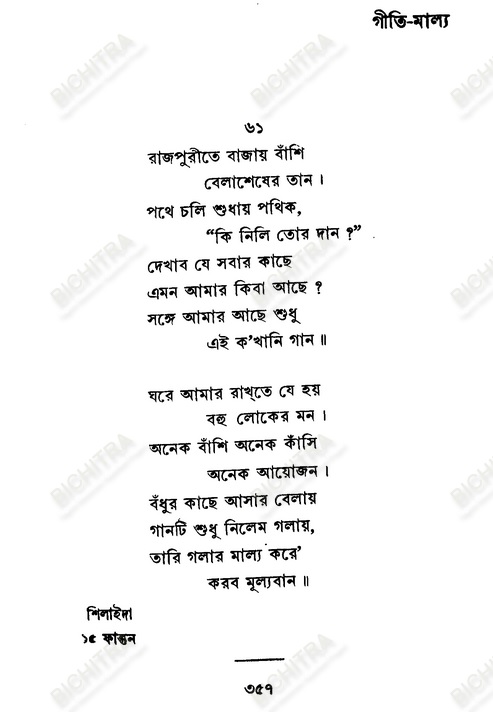 গীতি-মাল্য
৬১
রাজপুরীতে বাজায় বাঁশি
বেলাশেষের তান।
পথে চলি শুধায় পথিক,
“কি নিলি তোর দান ?”
দেখাব যে সবার কাছে
এমন আমার কিবা আছে ?
সঙ্গে আমার আছে শুধু
এই ক'খানি গান॥
ঘরে আমার রাখ্‌তে যে হয়
বহু লোকের মন।
অনেক বাঁশি অনেক কাঁসি
অনেক আয়োজন।
বঁধুর কাছে আসার বেলায়
গানটি শুধু নিলেম গলায়,
তারি গলার মাল্য করে'
করব মূল্যবান॥
শিলাইদা
১৫ ফাল্গুন
৩৫৭
BICHITRA
BICHITRA
BICHITRA
BICHITRA
BICHITRA
BICHITRA
BICHITRA
BICHITRA
BICHITRA
BICHITRA
BICHITRA
BICHITRA